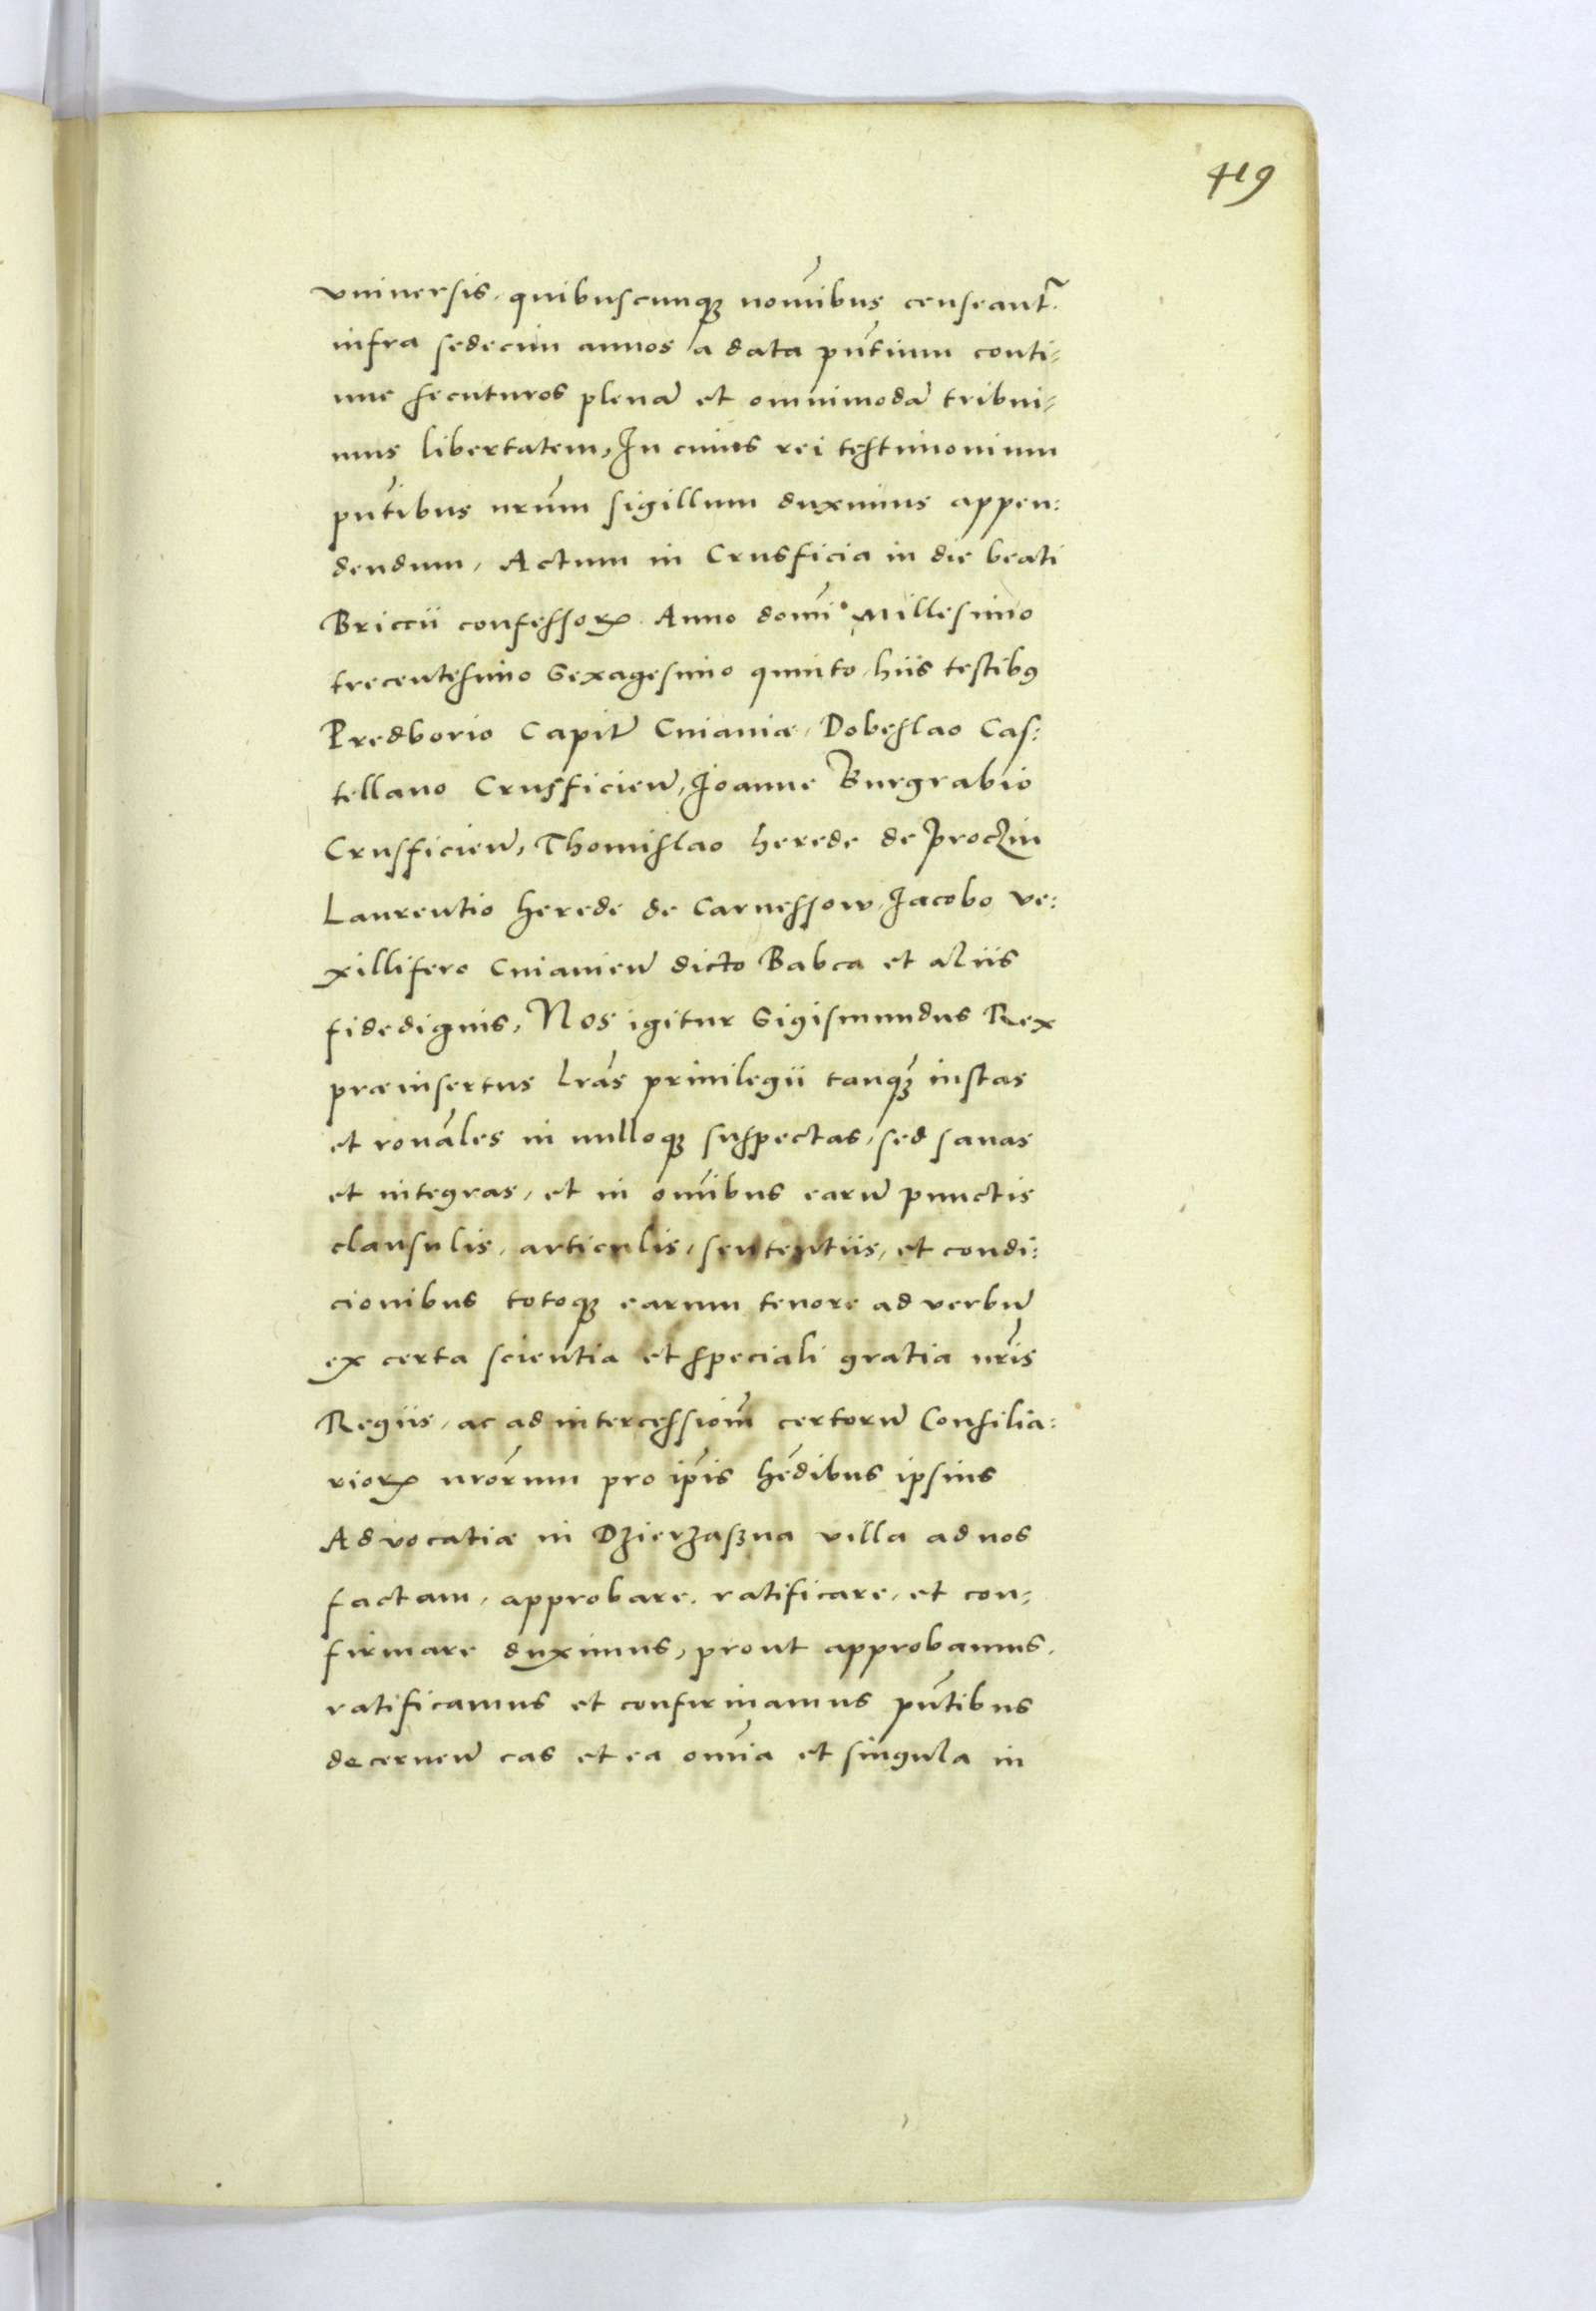 419
vniuersis, quibuscunqꝫ nom̃ibus censeant̃.
infra sedecim annos a data pñtium conti-
nue secuturos plenã et omnimodã tribui-
mus libertatem, In cuius rei testimonium
pñtibus nr̃um sigillum duximus appen:
dendum, Actum in Crusficia in die beati
Briccii confessoꝝ Anno domĩ Millesimo
trecentesimo Sexagesimo quinto, hiis testibꝯ
Predborio Capitẽ Cuiauiæ, Dobeslao Cas:
tellano Crusficieñ, Joanne Burgrabio
Crusficieñ, Thomislao herede de Proczin
Laurentio herede de Carnessow, Jacobo ve:
xillifero Cuiauieñ dicto Babca et aliis
fidedignis, Nos igitur Sigismundus Rex
præinsertus l̃ras priuilegii tanqꝫ iustas
et roñales in nulloqꝫ suspectas, sed sanas
et integras, et in om̃ibus earũ punctis
clausulis, articulis, sententiis, et condi:
cionibus totoqꝫ earum tenore ad verbũ
ex certa scientia et speciali gratia nr̃is
Regiis, ac ad intercessioñm certorũ Consilia:
rioꝝ nr̃orum pro ip̃is hẽdibus ipsius
Aduocatiæ in Dzierzaszna villa ad nos
factam, approbare, ratificare, et con-
firmare duximus, prout approbamus,
ratificamus et confirmamus pñtibus
decerneñ eas et ea om̃ia et singula in